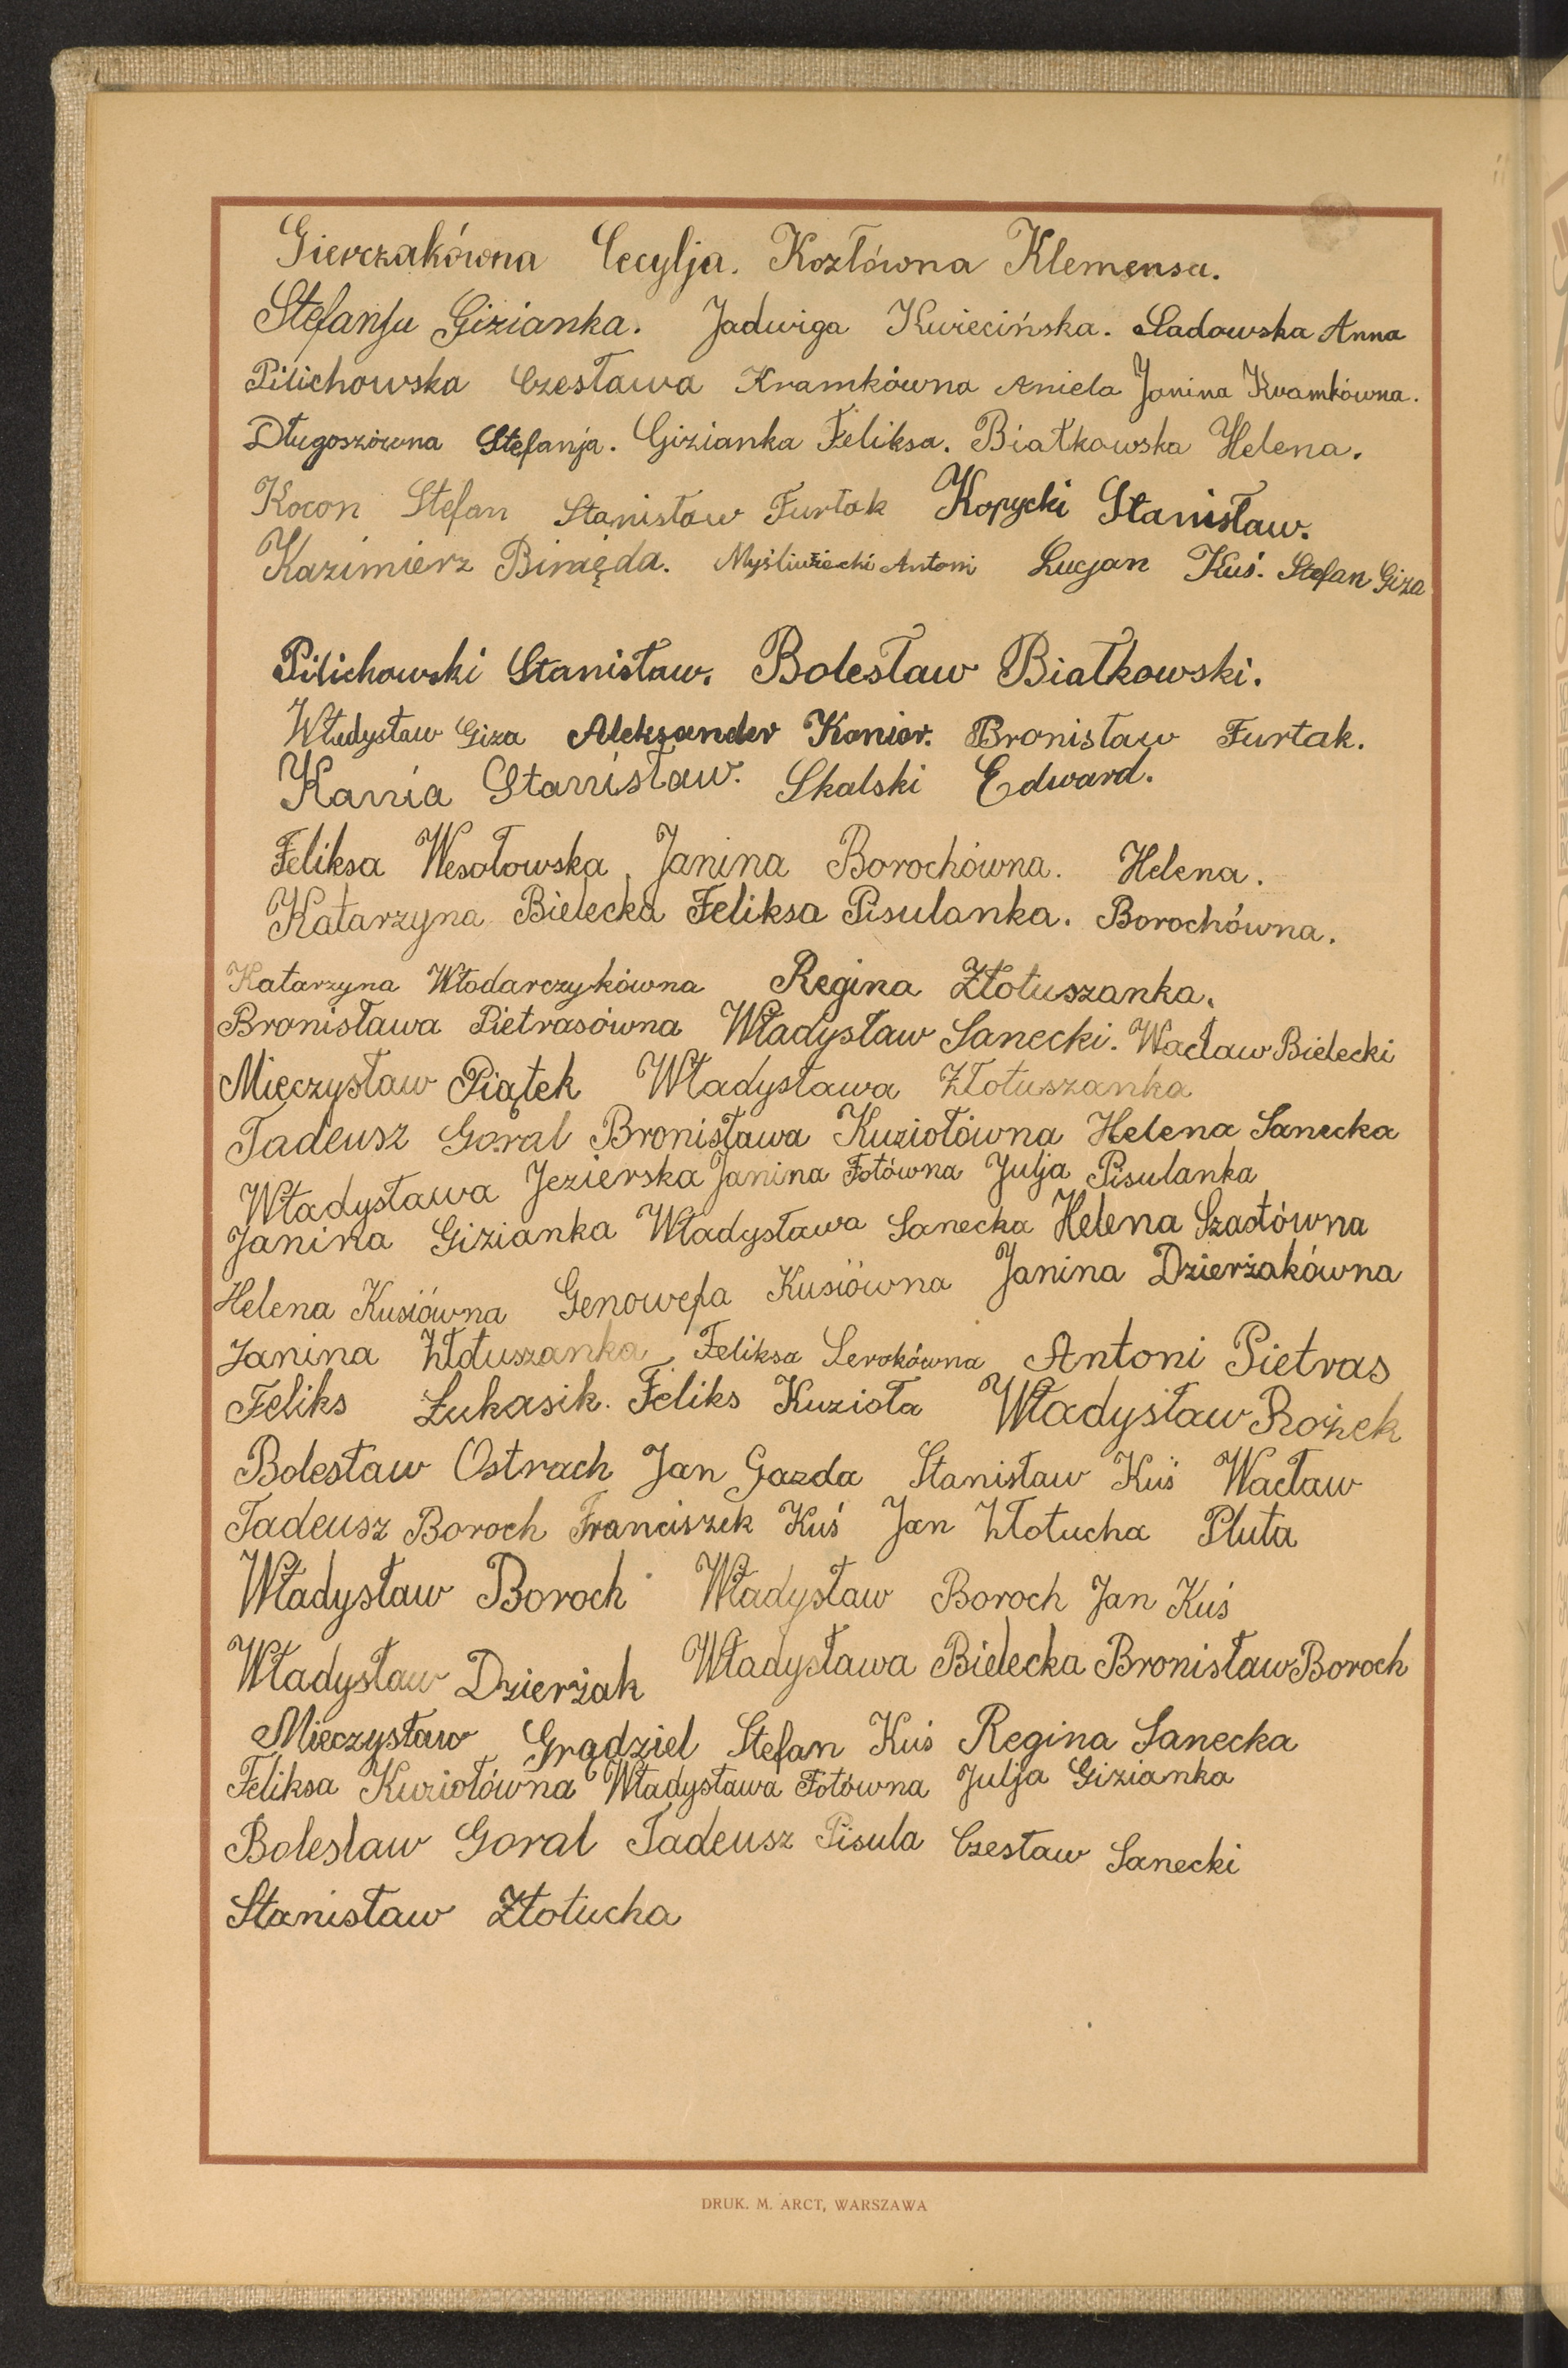 Gierczakówna Cecylja. Kozłówna Klemensa.
Stefanja Gizianka. Jadwiga Kwiecińska. Sadowska Anna
Pilichowska Czesława Kramkówna Aniela Janina Kramkówna.
Długoszówna Stefanja. Gizianka Feliksa. Białkowska Helena.
Kocon Stefan Stanisław Furtak Kopycki Stanisław.
Kazimierz Binięda. Myśliwiecki Antoni Lucjan Kuś. Stefan Giza
Pilichowski Stanisław. Bolesław Białkowski.
Władysław Giza Aleksander Konior. Bronisław Furtak.
Kania Stanisław. Skalski Edward.
Feliksa Wesołowska, Janina Borochówna. Helena.
Katarzyna Bielecka Feliksa Pisulanka. Borochówna.
Katarzyna Włodarczykówna Regina Złotuszanka.
Bronisława Pietrasówna Władysław Sanecki. Wacław Bielecki
Mieczysław Piątek Władysława Złotuszanka
Tadeusz Goral Bronisława Kuziołówna Helena Sanecka
Władysława Jezierska Janina Fotówna Julja Pisulanka
Janina Gizianka Władysława Sanecka Helena Szastówna
Helena Kusiówna Genowefa Kusiówna Janina Dzierżakówna
Janina Złotuszanka, Feliksa Serokówna Antoni Pietras
Feliks Łukasik. Feliks Kuzioła Władysław Rożek
Bolesław Ostrach Jan Gazda Stanisław Kuś Wacław
Tadeusz Boroch Franciszek Kuś Jan Złotucha Pluta
Władysław Boroch Władysław Boroch Jan Kuś
Władysław Dzierżak Władysława Bielecka Bronisław Boroch
Mieczysław Grądziel Stefan Kuś Regina Sanecka
Feliksa Kuziołówna Władysława Fotówna Julja Gizianka
Boleslaw Goral Tadeusz Pisula Czesław Sanecki
Stanisław Złotucha
DRUK. M. ARCT, WARSZAWA